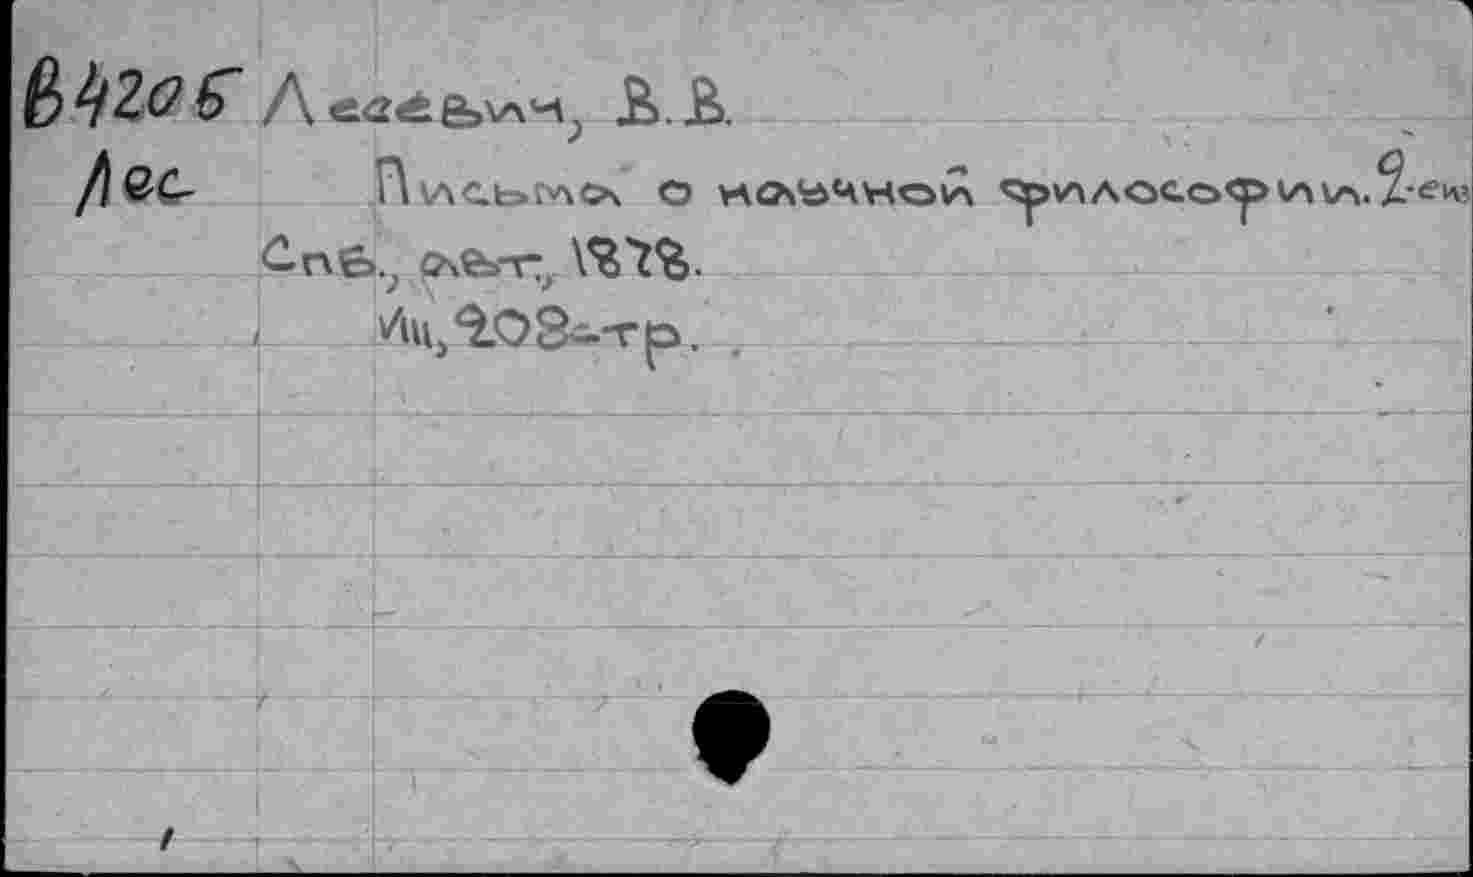 Лесевич, В.В.
Лес
Письма о научной философии. 2-е из
Спб., авт., 1878.
208 стр.